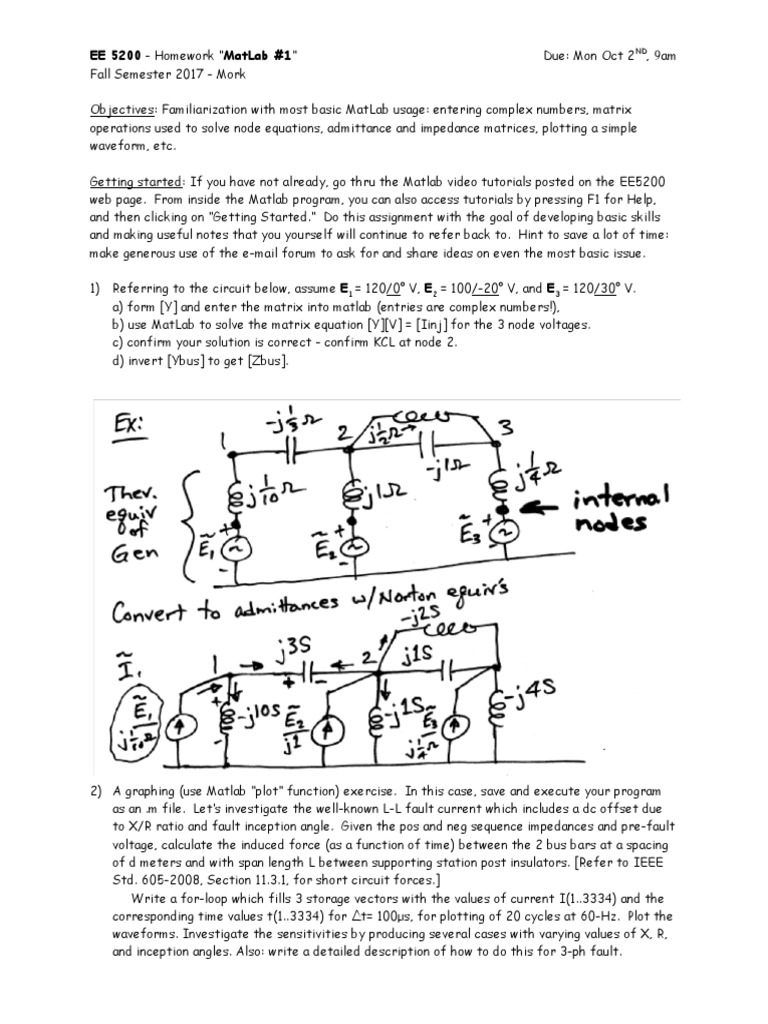 EE 5200 – Homework "MatLab #1" Due: Mon Oct 2ND, 9am
Fall Semester 2017 - Mork
Objectives: Familiarization with most basic MatLab usage: entering complex numbers, matrix
operations used to solve node equations, admittance and impedance matrices, plotting a simple
waveform, etc.
Getting started: If you have not already, go thru the Matlab video tutorials posted on the EE5200
web page. From inside the Matlab program, you can also access tutorials by pressing F1 for Help,
and then clicking on "Getting Started." Do this assignment with the goal of developing basic skills
and making useful notes that you yourself will continue to refer back to. Hint to save a lot of time:
make generous use of the e-mail forum to ask for and share ideas on even the most basic issue.
1) Referring to the circuit below, assume E1 = 120/0° V, E2 = 100/-20° V, and E3 = 120/30° V.
a) form [Y] and enter the matrix into matlab (entries are complex numbers!),
b) use MatLab to solve the matrix equation [Y][V] = [Iinj] for the 3 node voltages.
c) confirm your solution is correct – confirm KCL at node 2.
d) invert [Ybus] to get [Zbus].
Ex:
-j1/3Ω
1
2
j1/2Ω
3
-j1Ω
Thev.
equiv
of
Gen
j1/10Ω
j1Ω
j1/4Ω
internal
nodes
Ẽ1
+
-
Ẽ2
+
-
Ẽ3
+
-
Convert to admittances w/Norton equiv's
-j2S
Ĩ1
1
j3S
2
j1S
+ -
Ẽ1/j1/10Ω
+
-
-j10S
Ẽ2/j1
-j1S
Ẽ3/j1/4Ω
-j4S
2) A graphing (use Matlab "plot" function) exercise. In this case, save and execute your program
as an .m file. Let's investigate the well-known L-L fault current which includes a dc offset due
to X/R ratio and fault inception angle. Given the pos and neg sequence impedances and pre-fault
voltage, calculate the induced force (as a function of time) between the 2 bus bars at a spacing
of d meters and with span length L between supporting station post insulators. [Refer to IEEE
Std. 605-2008, Section 11.3.1, for short circuit forces.]
Write a for-loop which fills 3 storage vectors with the values of current I(1..3334) and the
corresponding time values t(1..3334) for Δt= 100μs, for plotting of 20 cycles at 60-Hz. Plot the
waveforms. Investigate the sensitivities by producing several cases with varying values of X, R,
and inception angles. Also: write a detailed description of how to do this for 3-ph fault.